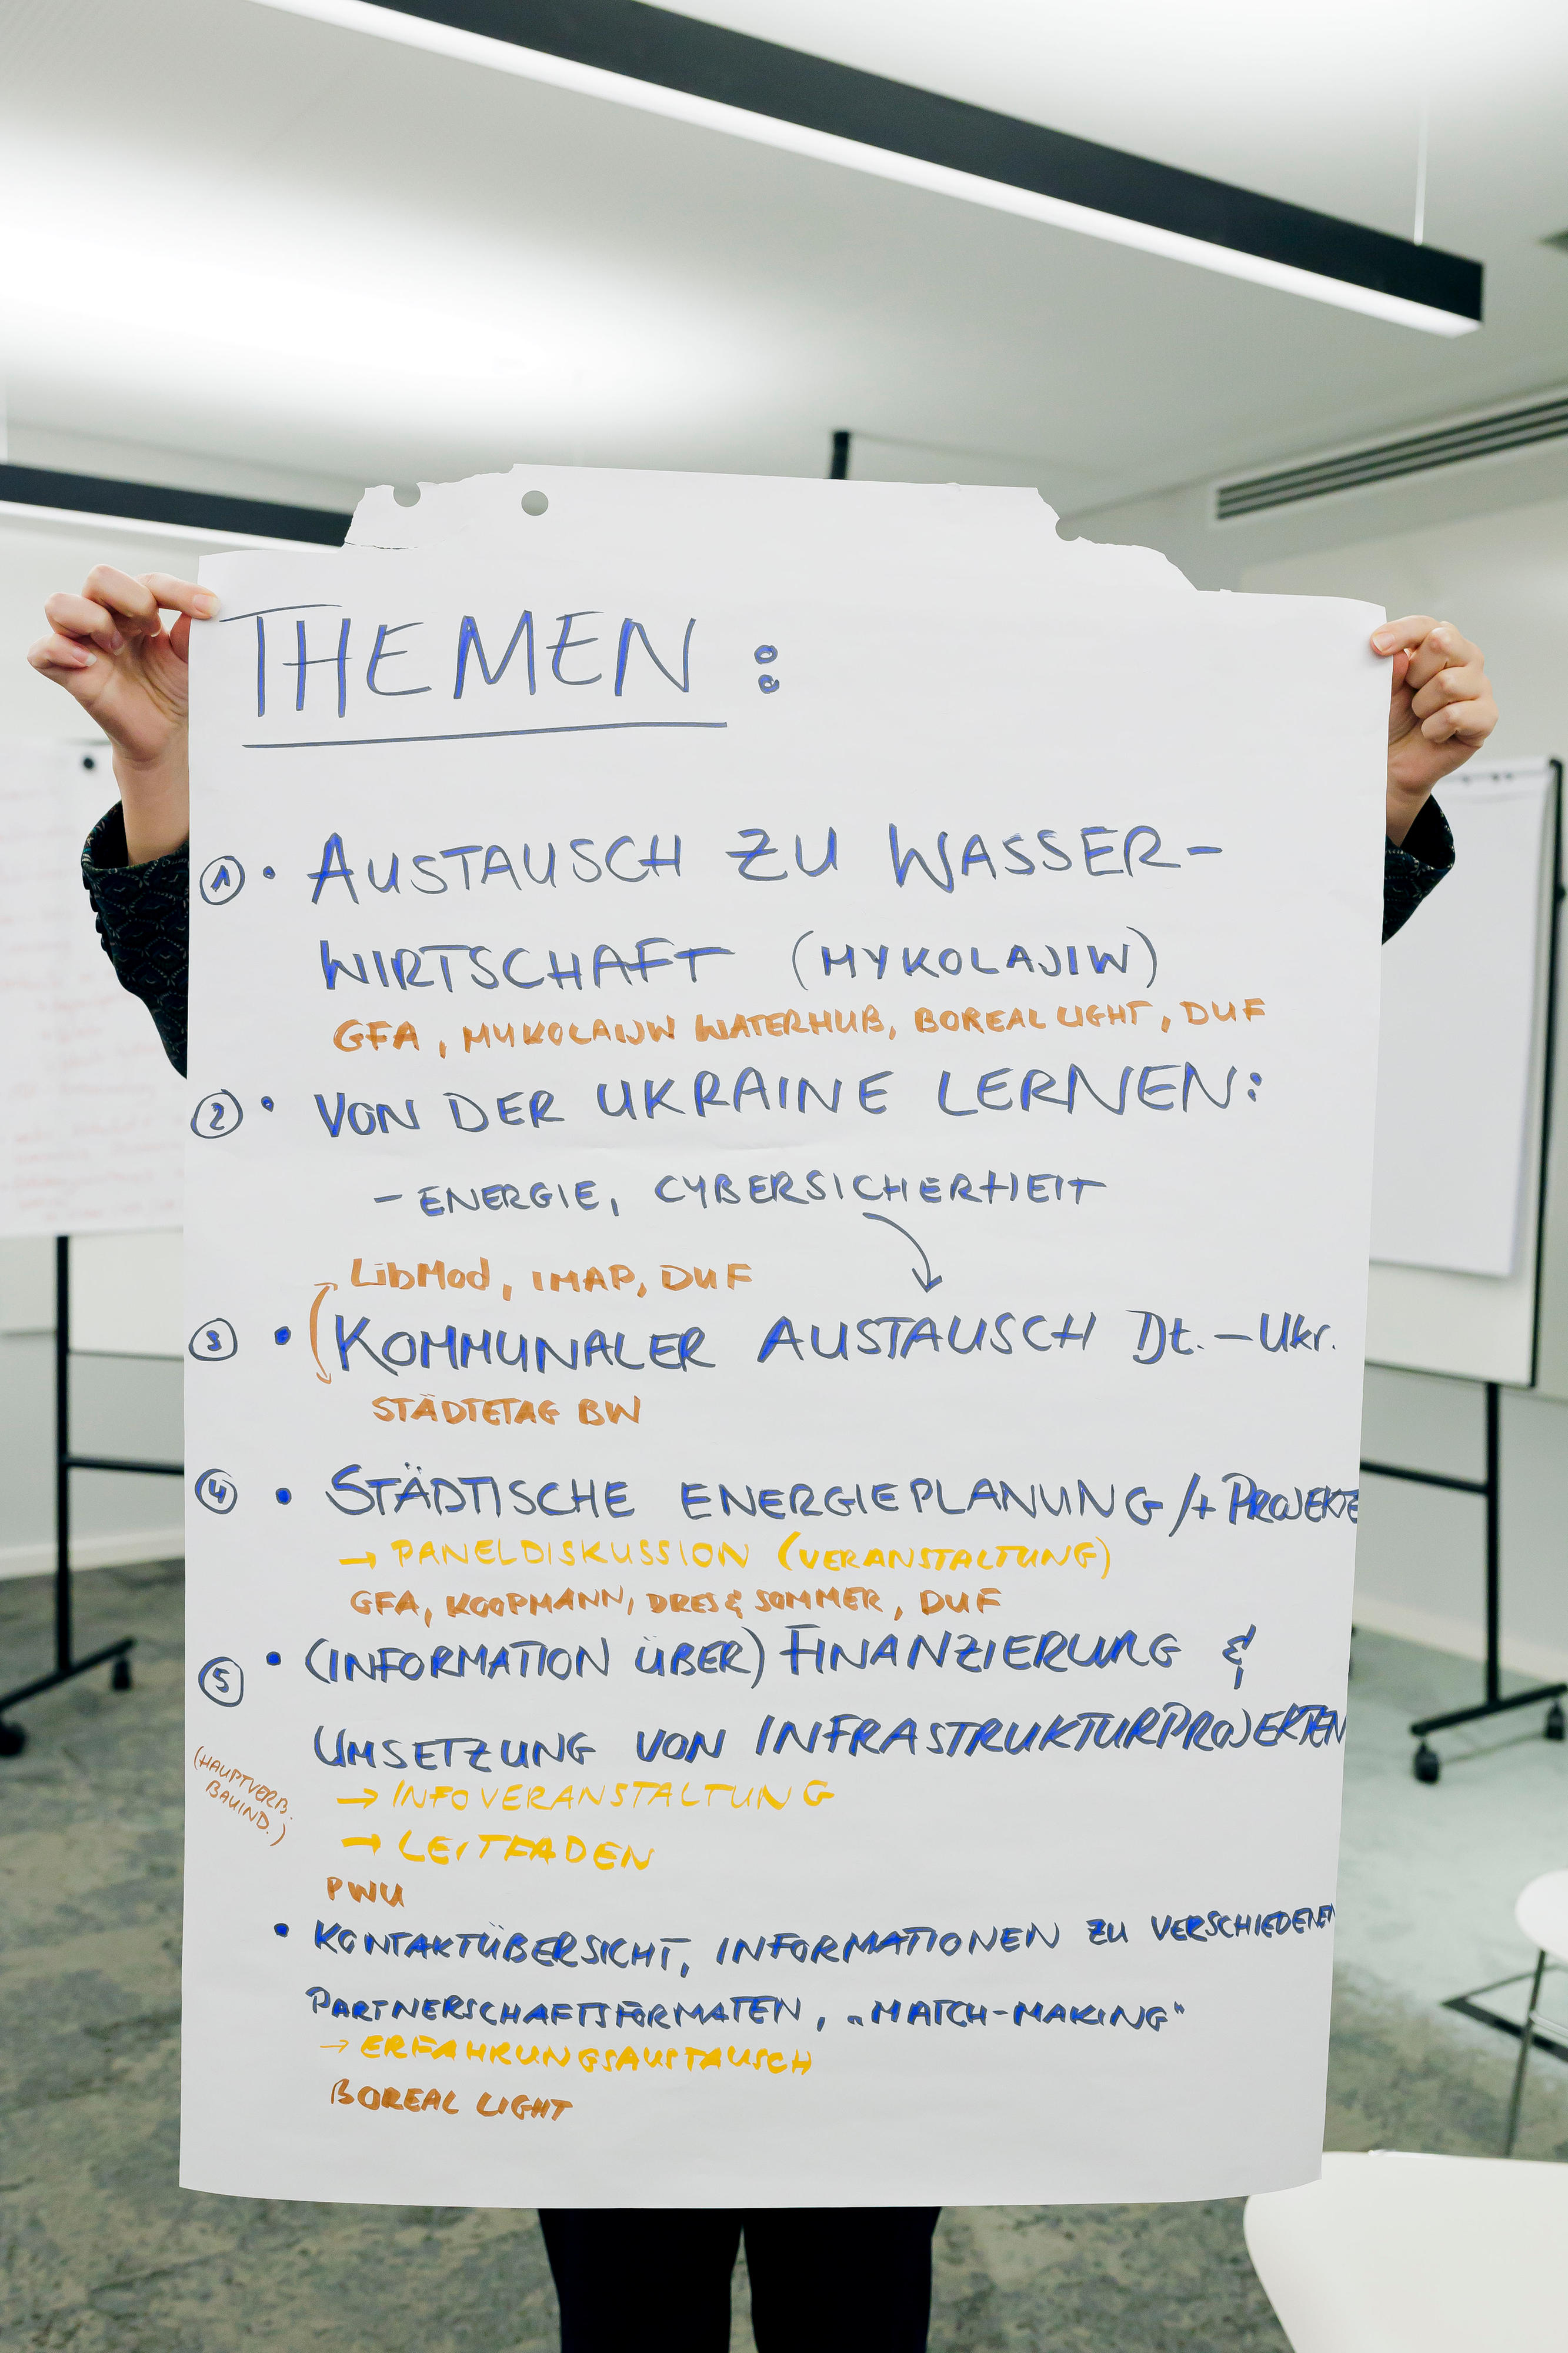 THEMEN:
① • AUSTAUSCH ZU WASSER-
WIRTSCHAFT (MYKOLAJIW)
GFA, MYKOLAIJW WATERHUB, BOREAL LIGHT, DUF
② • VON DER UKRAINE LERNEN:
- ENERGIE, CYBERSICHERHEIT
LibMod, IMAP, DUF
③ • KOMMUNALER AUSTAUSCH Dt. - Ukr.
STÄDTETAG BW
④ • STÄDTISCHE ENERGIEPLANUNG /+ PROJEKTE
→ PANELDISKUSSION (VERANSTALTUNG)
GFA, KOOPMANN, DRES & SOMMER, DUF
⑤ • (INFORMATION ÜBER) FINANZIERUNG &
UMSETZUNG VON INFRASTRUKTURPROJEKTEN
(HAUPTVERB.
BAUIND.)
→ INFOVERANSTALTUNG
→ LEITFADEN
PWU
• KONTAKTÜBERSICHT, INFORMATIONEN ZU VERSCHIEDENEN
PARTNERSCHAFTSFORMATEN, „MATCH-MAKING"
→ ERFAHRUNGSAUSTAUSCH
BOREAL LIGHT